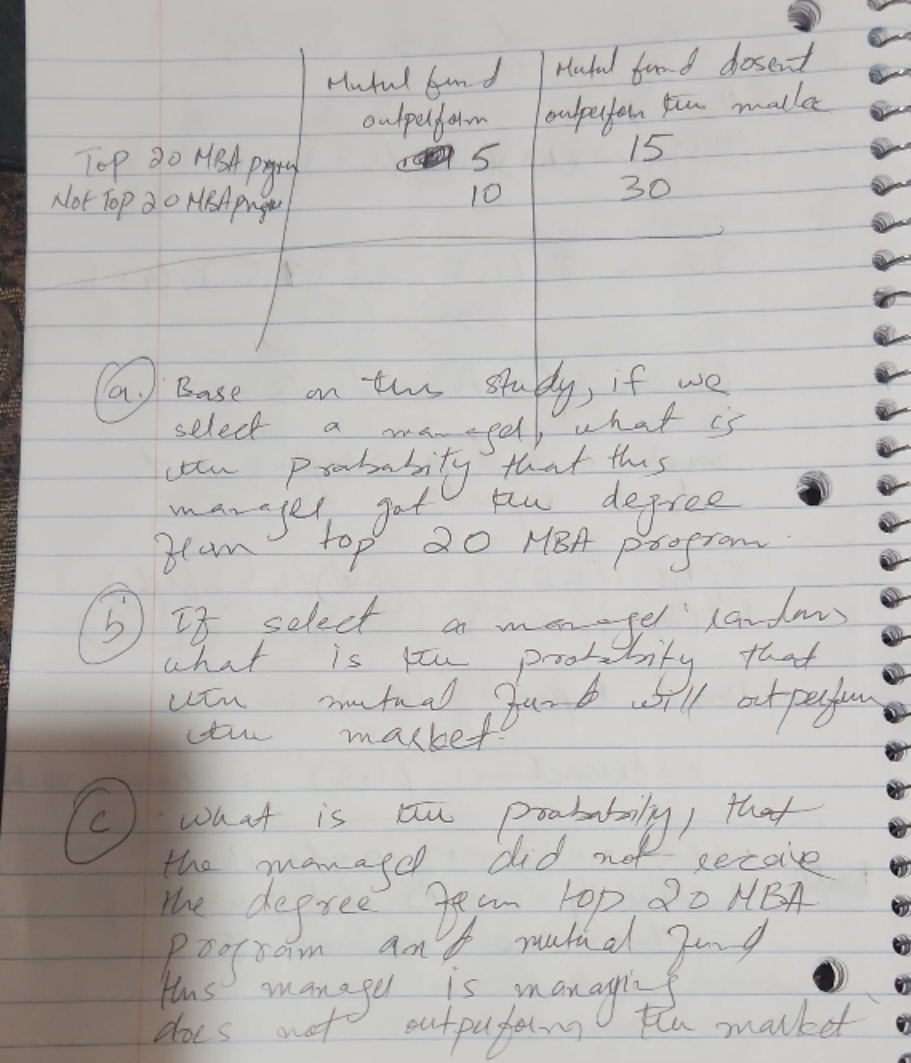 Mutul fund Mutul fund dosent
outperform outperform the marke
Top 20 MBA program 5 15
Not Top 20 MBA progra 10 30
a. Base on this study, if we
select a manager, what is
the probabity that this
manager got the degree
from top 20 MBA program.
b If select a manager random
what is the probability that
the mutual fund will outperform
the market.
c what is the probability, that
the manager did not receive
the degree from top 20 MBA
program and mutual fund
this manager is managing
does not outperform the market